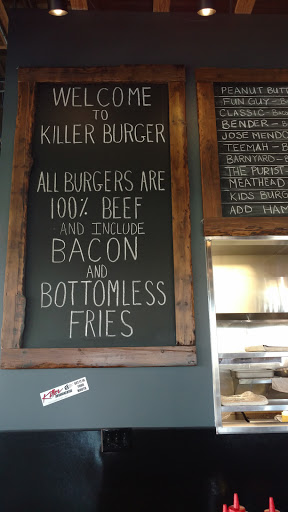 WELCOME
TO
KILLER BURGER
ALL BURGERS ARE
100% BEEF
AND INCLUDE
BACON
AND
BOTTOMLESS
FRIES
PEANUT BUTT
FUN GUY-B
CLASSIC-BAC
BENDER-B
JOSE MENDO
TEEMAH-B
BARNYARD-B
THE PURIST
MEATHEAD
KIDS BURG
ADD HAM
Killer